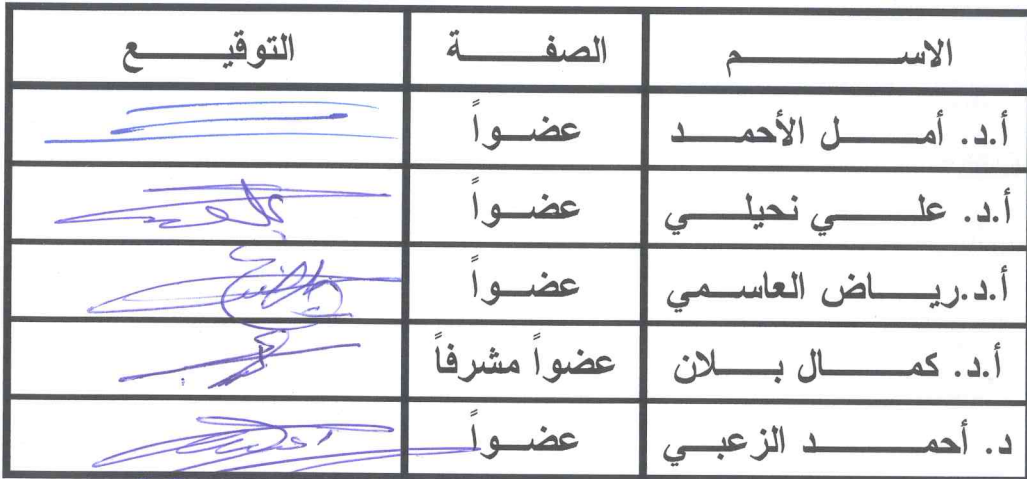 الاسم الصفة التوقيع
أ.د. أمل الأحمد عضواً
أ.د. علي نحيلي عضواً
أ.د.رياض العاسمي عضواً
أ.د. كمال بلان عضواً مشرفاً
د. أحمد الزعبي عضواً